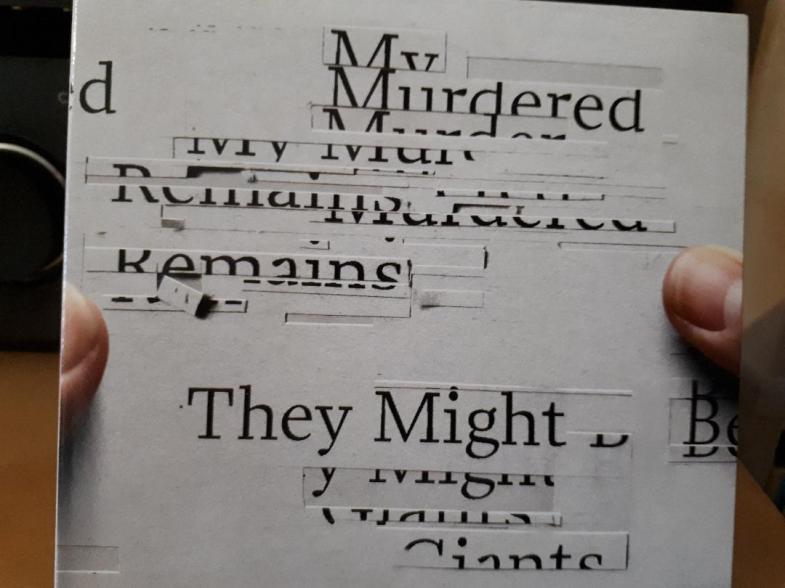 My
d Murdered
Murder
My Mur
Remains
Murdered
Remains
They Might B Be
y Might
Giants
Giants